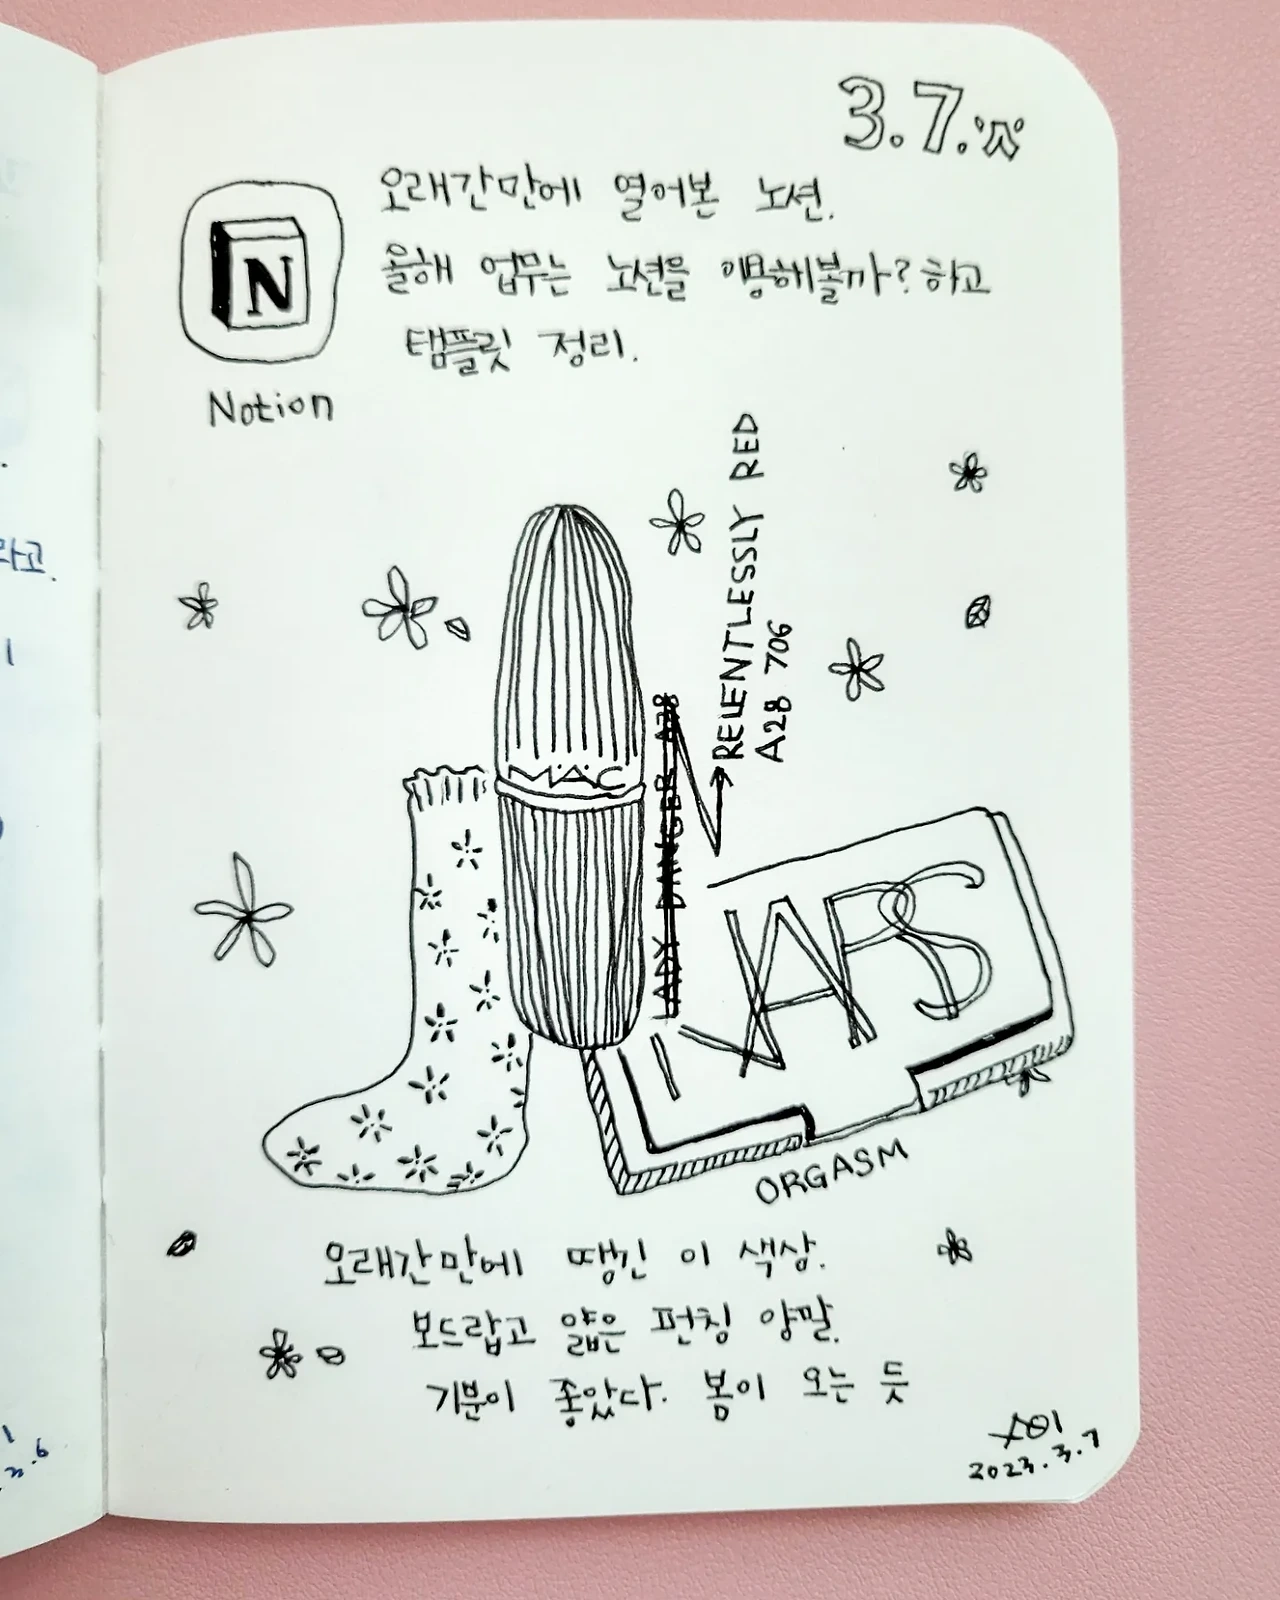 3.7.火
오래간만에 열어본 노션.
올해 업무는 노션을 이용해볼까? 하고
템플릿 정리.
N
Notion
RELENTLESSLY RED
A28 706
LADY DANGER A28
MAC
NARS
ORGASM
오래간만에 땡긴 이 색상.
보드랍고 얇은 펀칭 양말.
기분이 좋았다. 봄이 오는 듯
2023.3.7
라고.